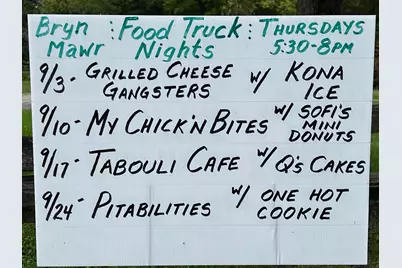 Bryn Mawr : Food Truck Nights : Thursdays 5:30-8pm
9/3 - Grilled Cheese Gangsters w/ Kona Ice
9/10 - My Chick'n Bites w/ Sofi's Mini Donuts
9/17 - Tabouli Cafe w/ Q's Cakes
9/24 - Pitabilities w/ One Hot Cookie